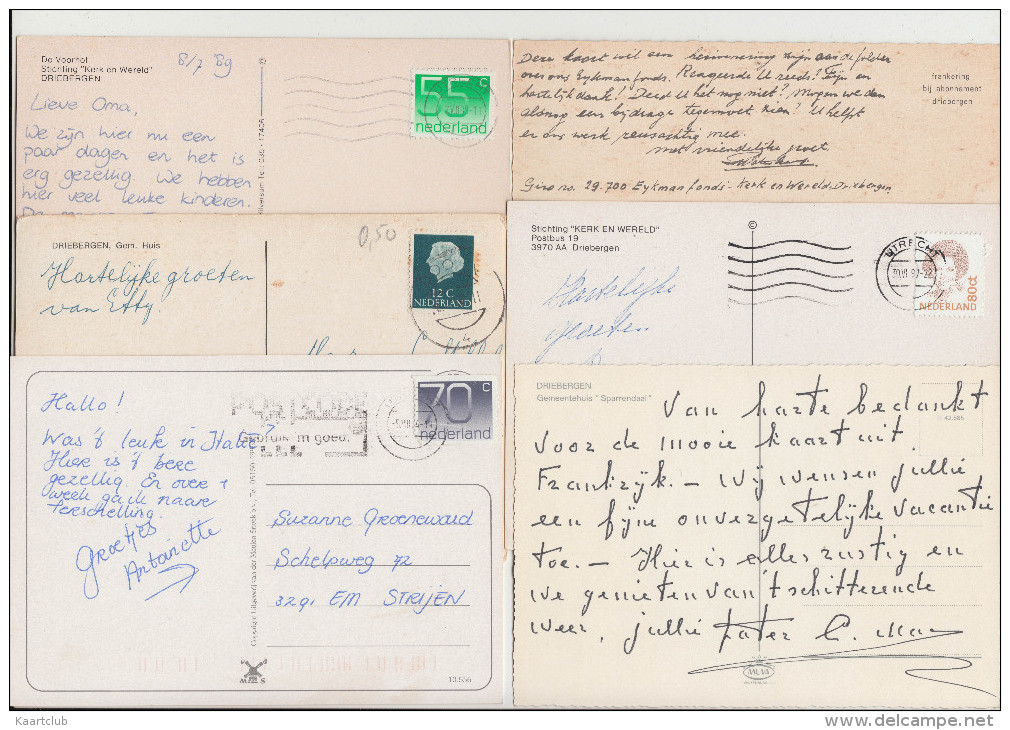 De Voorhof
Stichting "Kerk en Wereld"
DRIEBERGEN
8/7 '89
Lieve Oma,
We zijn hier nu een
paar dagen en het is
erg gezellig. We hebben
hier veel leuke kinderen.
55 c
nederland
Deze kaart wil een herinnering zijn aan de folder
over ons Eykmanfonds. Reageerde U reeds? Fijn en
hartelijk dank! Deed U het nog niet? Mogen we dan
alsnog een bijdrage tegemoet zien? U helpt
er ons werk reusachtig mee.
met vriendelijke groet.
Giro no. 29.700 Eykman fonds - Kerk en Wereld. Driebergen.
frankering
bij abonnement
driebergen
DRIEBERGEN, Gem. Huis
0,50
Hartelijke groeten
van Etty.
12 C
NEDERLAND
Stichting "KERK EN WERELD"
Postbus 19
3970 AA Driebergen
©
Hartelijke
groeten
UTRECHT
NEDERLAND
80ct
Hallo!
Was 't leuk in Italië?
Hier is 't bere
gezellig. En over 1
week ga ik naar
Terschelling.
Groetjes
Antoinette
POSTCODE
Gebruik 'm goed.
70 c
nederland
Suzanne Groeneweud
Schelpweg 72
3291 EM STRIJEN
13.556
DRIEBERGEN
Gemeentehuis "Sparrendaal"
Van harte bedankt
voor de mooie kaart uit
Frankrijk. - Wij wensen jullie
een fijne onvergetelijke vacantie
toe. - Hier is alles rustig en
we genieten van 't schitterende
weer, jullie pater C.
MUVA
Kaartclub
www.delcampe.net